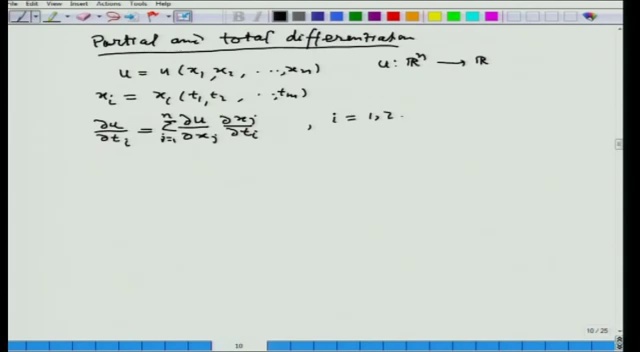 Edit View Insert Actions Tools Help
Partial and total differentiation
u = u(x₁, x₂, ..., xₙ) u: ℝⁿ → ℝ
xᵢ = xᵢ(t₁, t₂, ..., tₘ)
∂u/∂tᵢ = Σⁿⱼ₌₁ ∂u/∂xⱼ ∂xⱼ/∂tᵢ , i = 1, 2.
10 / 25
10